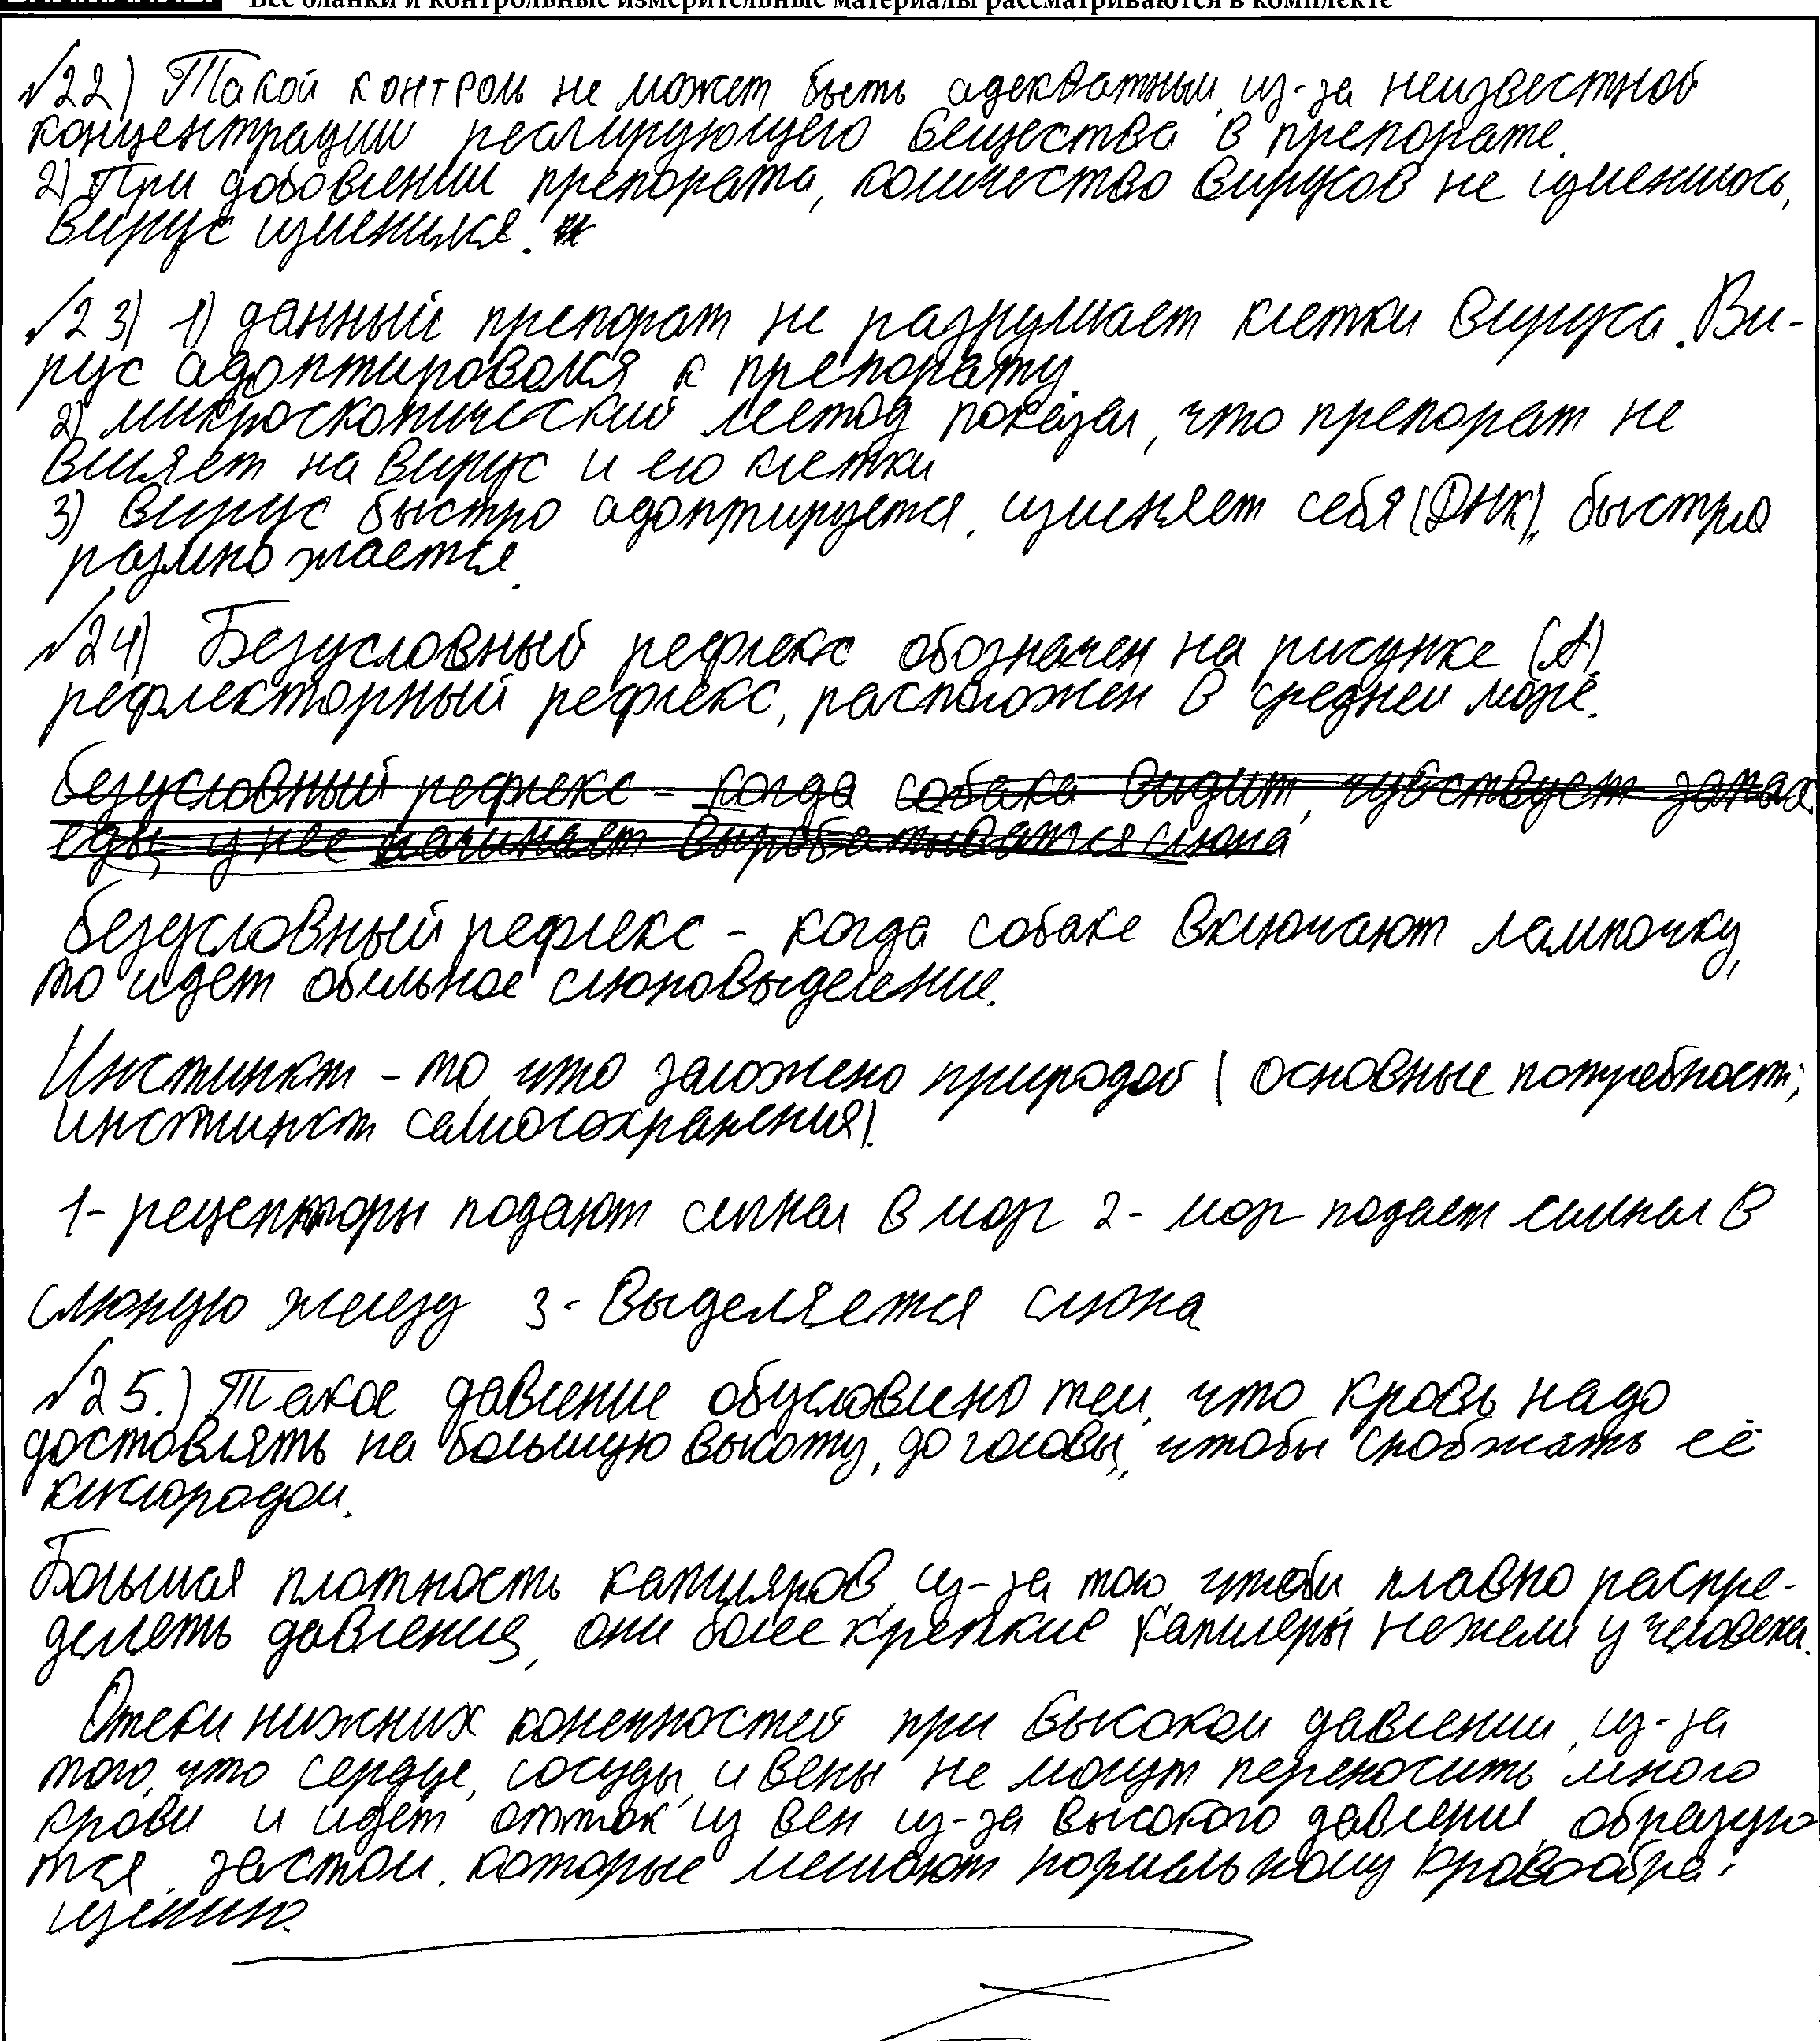 Все бланки и контрольные измерительные материалы рассматриваются в комплекте
№22) Такой контроль не может быть адекватным, из-за неизвестной
концентрации реагирующего вещества в препорате.
2) При добовлении препората, количество вирусов не изменилось,
вирус изменился.
№23) 1) данный препорат не разрушает клетки вируса. Ви-
рус адоптировался к препорату.
2) микроскопический метод показал, что препорат не
влияет на вирус и его клетки
3) Вирус быстро адоптируется, изменяет себя (ДНК), быстро
размножается.
№24) Безусловный рефлекс обозначен на рисунке (А)
рефлекторный рефлекс, расположен в среднем мозге.
безусловный рефлекс - когда собака видит, чувствует запах
еды, у нее начинает выробатываться слюна
безусловный рефлекс - когда собаке включают лампочку,
то идет обильное слюновыделение.
Инстинкт - то, что заложено природой (основные потребности;
инстинкт самосохранения).
1- рецепторы подают сигнал в мозг 2- мозг подает сигнал в
слюную железу 3- Выделяется слюна
№25.) Такое давление обусловлено тем, что кровь надо
доставлять на большую высоту, до головы, чтобы снобжать её
кислородом.
Большая плотность капиляров, из-за того чтобы плавно распре-
делять давление, они более крепкие капиляры нежели у человека.
Отеки нижних конечностей при высоком давлении, из-за
того, что сердце, сосуды, и вены не могут переносить много
крови и идет отток из вен из-за высокого давления, образую
тся застои, которые мешают нормальному кровообра-
щению.